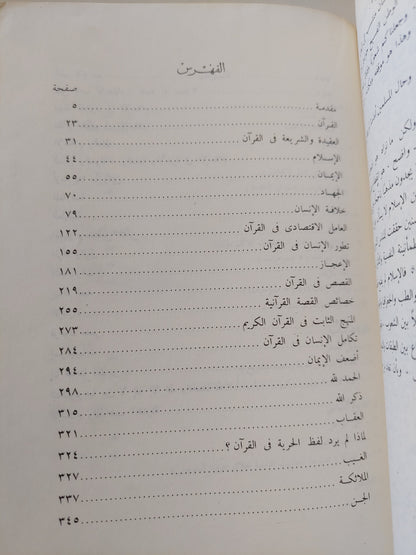 الفهرس
صفحة
مقدمة ٥
القرآن ٢٣
العقيدة والشريعة فى القرآن ٣١
الإسلام ٤٤
الإيمان ٥٥
الجهاد ٧٠
خلافة الإنسان ٧٩
العامل الاقتصادى فى القرآن ١٢٢
تطور الإنسان فى القرآن ١٥٥
الإعجاز ١٨١
القصص فى القرآن ٢١٩
خصائص القصة القرآنية ٢٥٥
المنهج الثابت فى القرآن الكريم ٢٧٣
تكامل الإنسان فى القرآن ٢٨٤
أضعف الإيمان ٢٩٤
الحمد لله ٢٩٨
ذكر الله ٣١٥
العقاب ٣٢١
لماذا لم يرد لفظ الحرية فى القرآن ؟ ٣٢٤
الغيب ٣٢٧
الملائكة ٣٣٧
الجن ٣٤٥